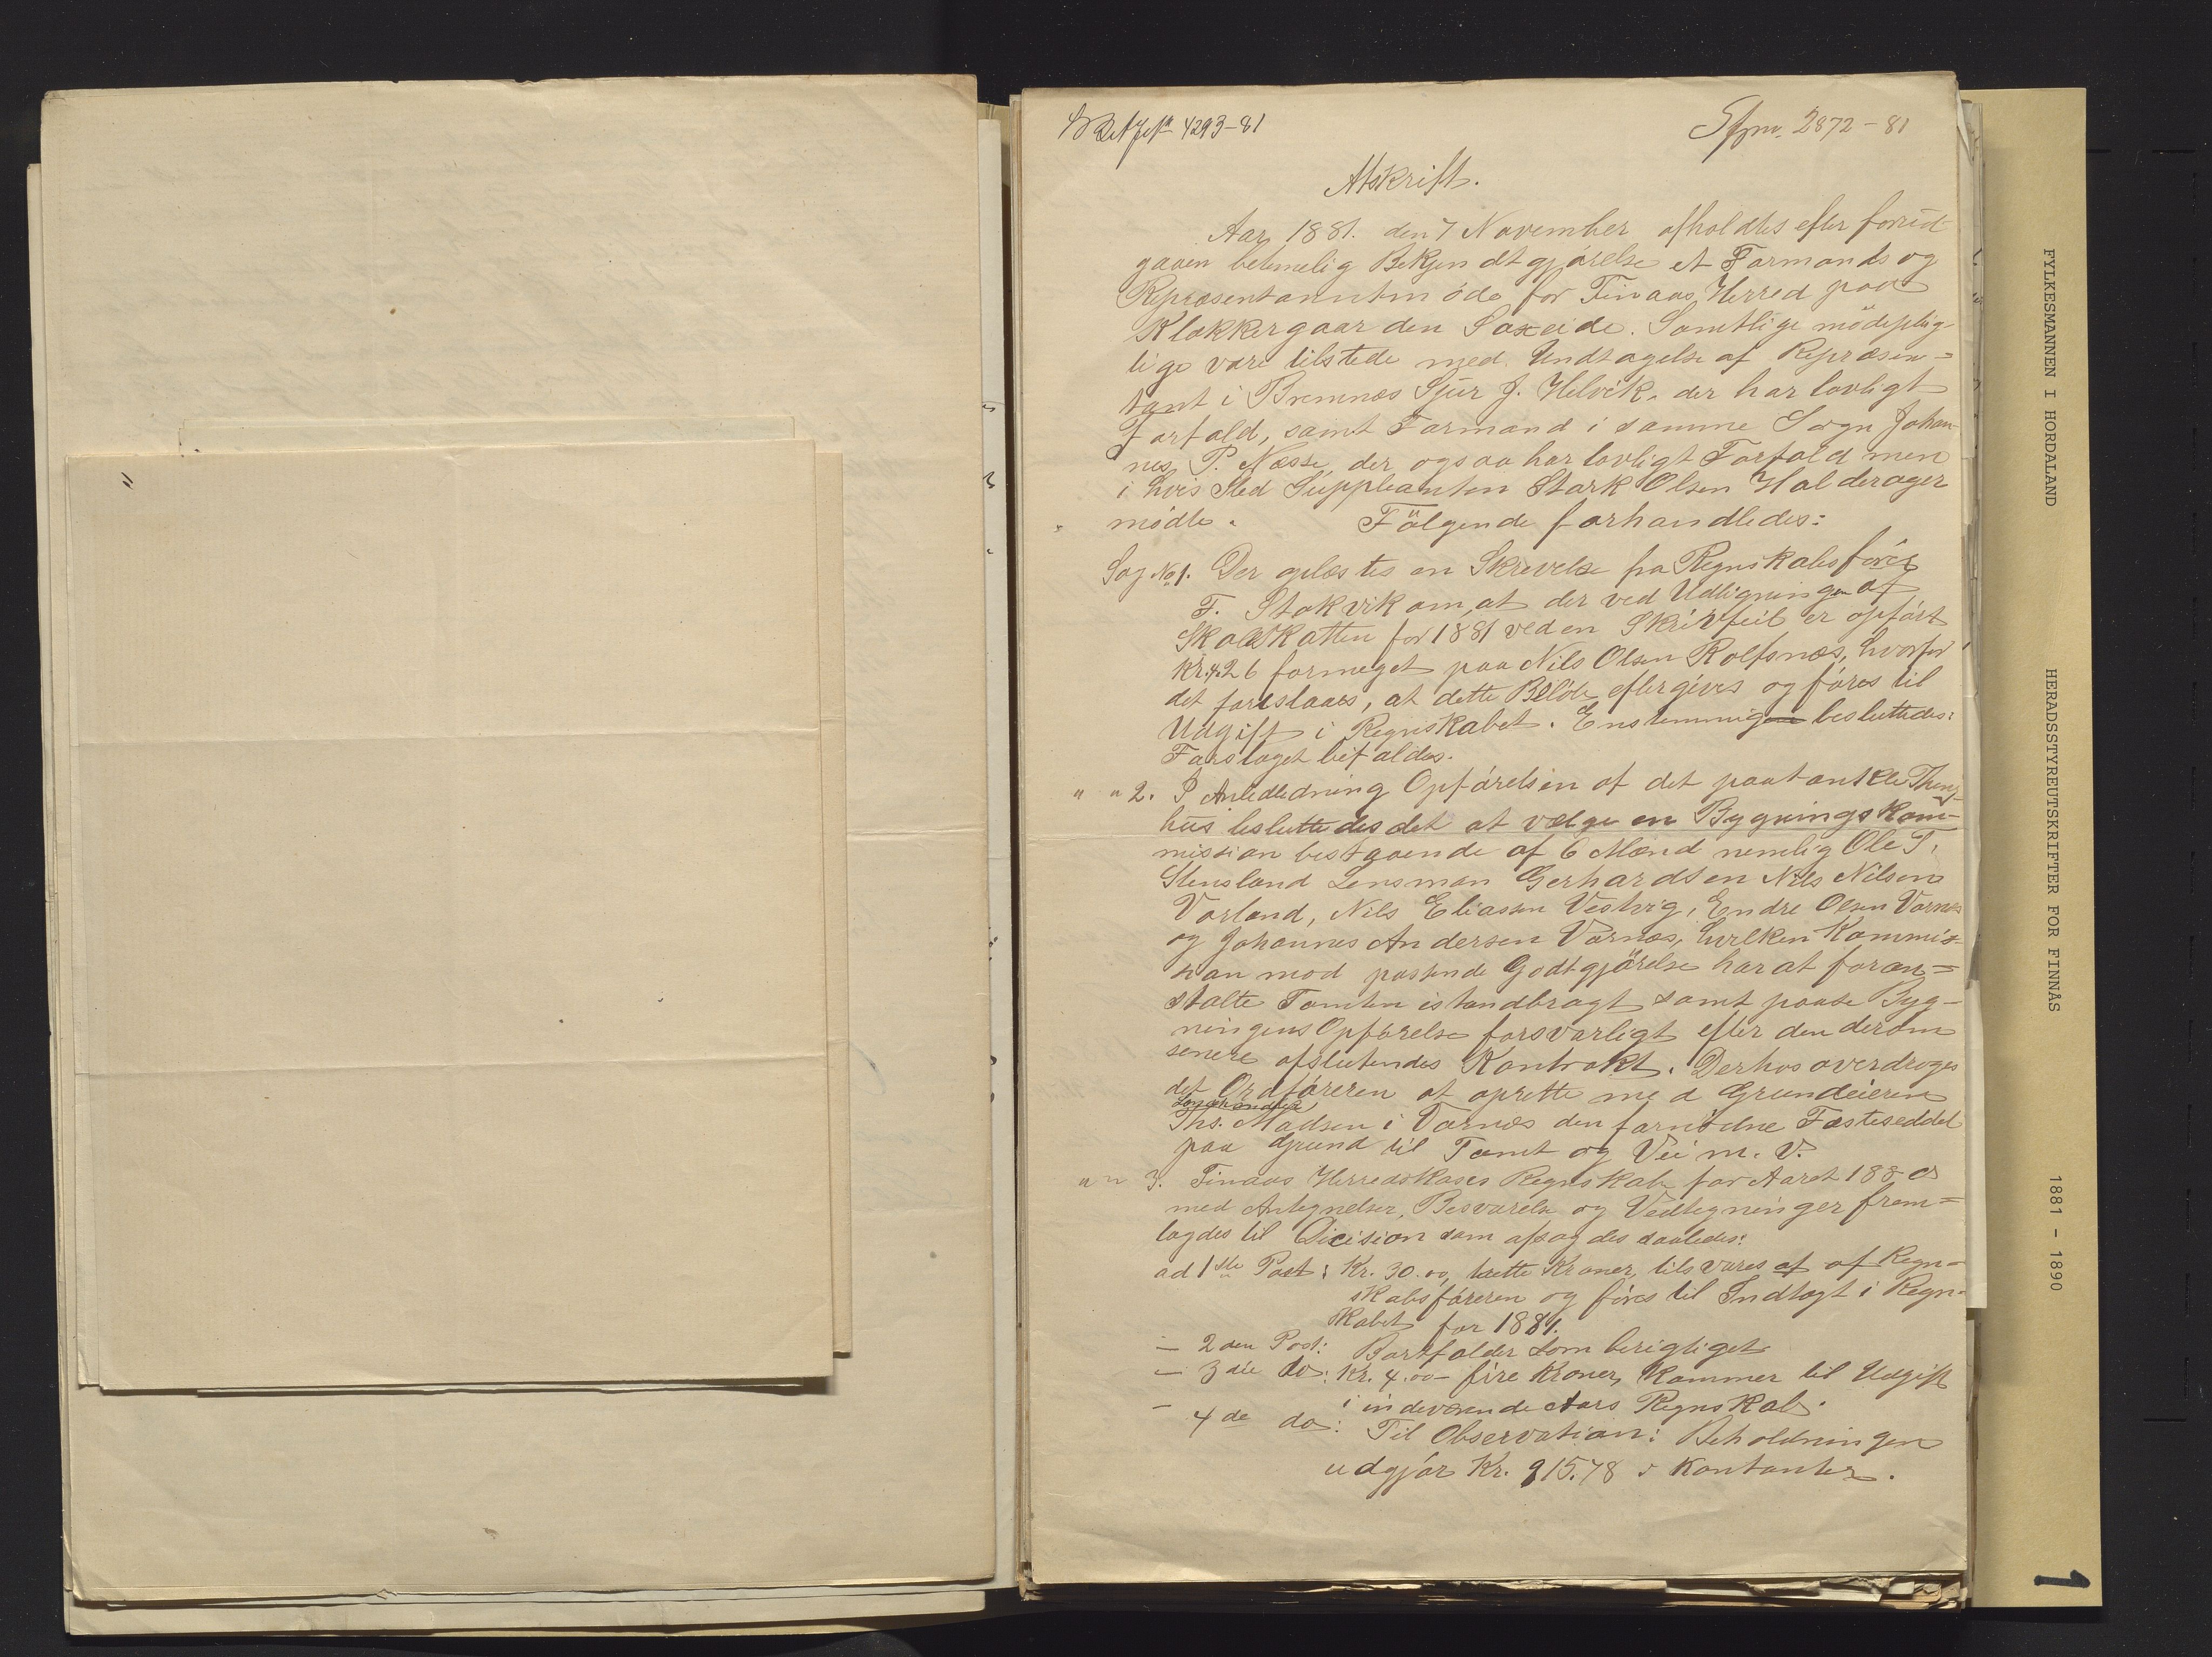 4293-81
2872-81
Afskrift.
Aar 1881. den 7 November afholdtes efter forud-
gaaen betimelig Bekjendtgjørelse et Formands og
Repræsentantmöde for Finaas Herred paa
Klokkergaarden Saxeide. Samtlige mödeplig-
lige vare tilstede med Undtagelse af Repræsen=
tant i Bremnes Sjur J. Helvik, der har lovligt
Forfald, samt Formand i samme Sogn Johan-
nes P. Næsse, der ogsaa har lovligt Forfald men
i hvis Sted Suppleanten Stark Olsen Halderager
mödte. Fölgende forhandledes:
Sag No 1. Der oplæstes en Skrivelse fra Regnskabsförer
F. Stokvik om, at der ved Udligningen af
Skoleskatten for 1881 ved en Skrivfeil er opført
Kr. 4.26 formeget paa Nils Olsen Rolfsnæs, hvorfor
det foreslaaes, at dette Beløb eftergives og føres til
Udgift i Regnskabet. Enstemmigen besluttedes:
Forslaget bifaldes.
" " 2. I Anledledning Opførelsen af det paatænkte Thing-
hus besluttedes det at vælge en Bygningskom-
mission bestaaende af 6 Mænd nemlig Ole T.
Stensland Lensman Gerhardsen Nils Nilsen
Vorland, Nils Eliassen Vestvig, Endre Olsen Vornæs
og Johannes Andersen Vornæs, hvilken Kommis-
sion mod passende Godtgjörelse har at foran=
stalte Tomten istandbragt samt paase Byg-
ningens Opførelse forsvarligt efter den derom
senere afsluttendes Kontrakt. Derhos overdroges
det Ordføreren at oprette med Grundeieren
Landhandler
Ths. Madsen i Vornæs den fornødne Fæsteseddel
paa Grund til Tomt og Vei m. V.
" " 3. Finaas Herredskases Regnskab for Aaret 1880
med Antegnelser, Besvarelse og Vedtegninger frem=
lagdes til Dicision som afsagdes saaledes:
ad 1ste Post: Kr. 30.00, trætte Kroner, tilsvares af af Regn-
skabsføreren og føres til Indtægt i Regn-
skabet for 1881.
– 2den Post: Bortfalder som berigtiget
– 3die do: Kr. 4.00 – fire Kroner, kommer til Udgift
i indeværende Aars Regnskab.
– 4de do: Til Observation: Beholdningen
udgjør Kr. 915.78 i Kontanter.
FYLKESMANNEN I HORDALAND
HERADSSTYREUTSKRIFTER FOR FINNÅS
1881 - 1890
1